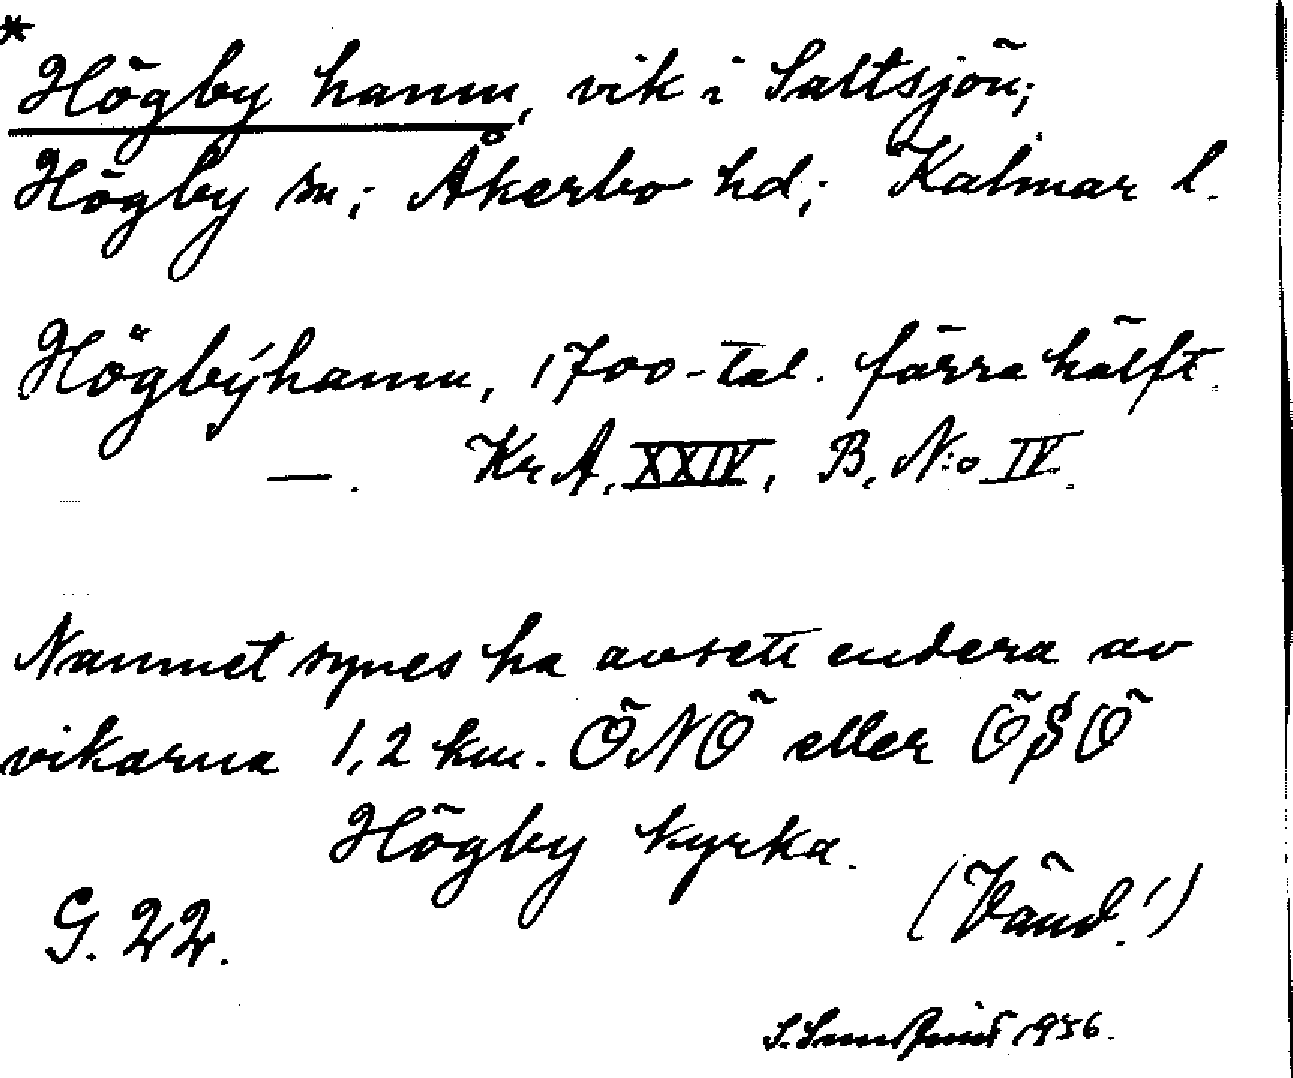 *
Högby hamn, vik i Saltsjön;
Högby sn; Åkerbo hd; Kalmar l.
Högbÿhamn, 1700-tal. förra hälft.
—. Kr. A. XXIV, B, N:o IV.
Namnet synes ha avsett endera av
vikarna 1,2 km. ÖNÖ eller ÖSÖ
Högby kyrka.
(Vänd!)
G. 22.
S. 1956.